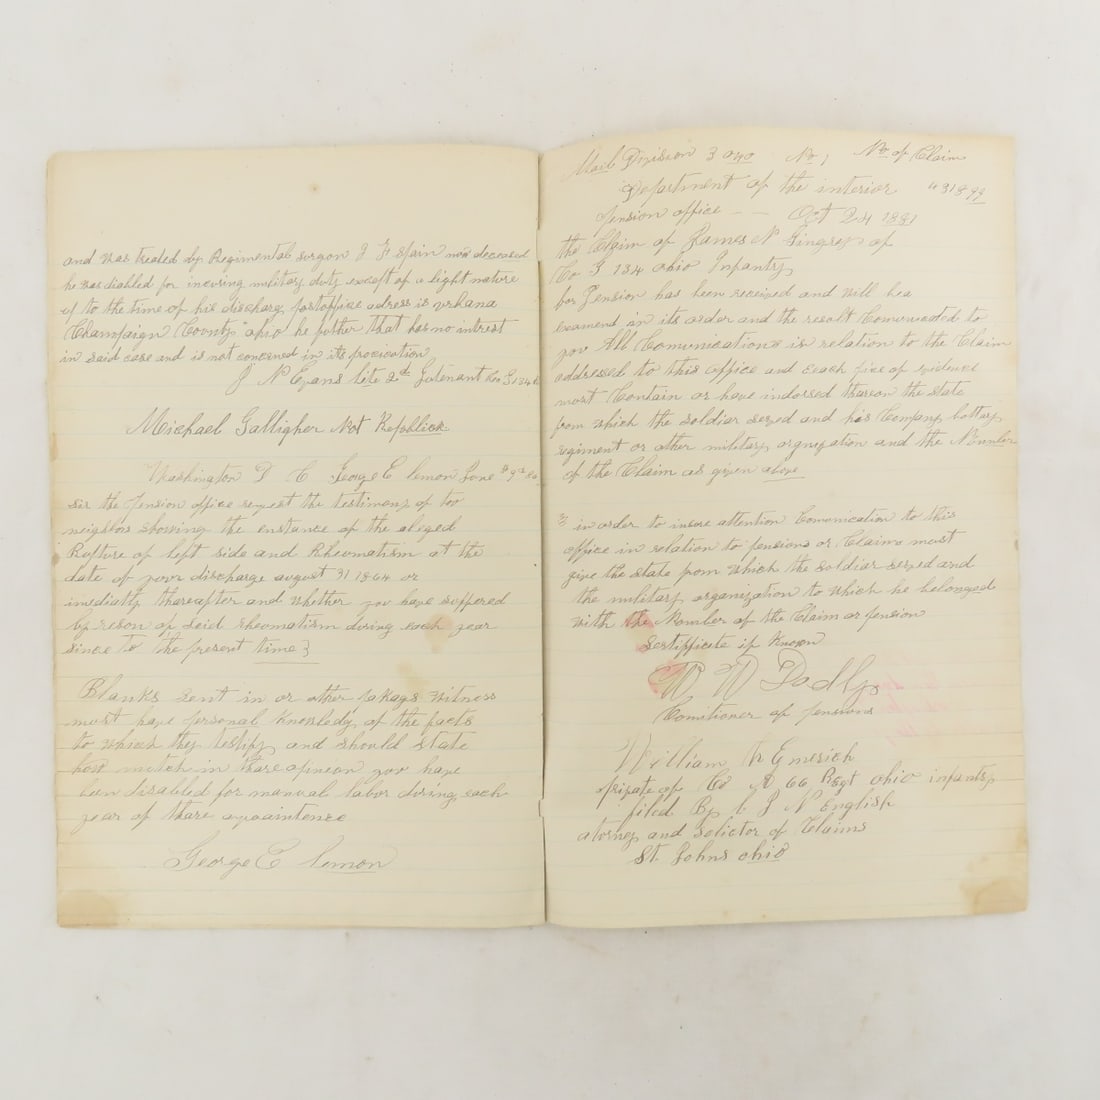 and was treated by Regimental surgon J F Spain now deceased
he was diabled for incuring military duty except of a light nature
up to the time of his discharg, postoffice adress is urbana
Champaign County ohio he futher that has no intrest
in said case and is not concerned in its procication
J N Evans lite 2d Lutenant Co G 134
Michael Galligher Not Repblick
Washington D C George E lemon June
Sir the Pension office request the testimony of too
neighbors showing the enstance of the aleged
Rupture of left side and Rheumatism at the
date of your discharge august 31 1864 or
imediatly thareafter and whether you have suffered
by reson of said rheumatism during each year
since to the present time}
Blanks sent in or other pakags witness
must have personal knowledg of the facts
to which they testify and should state
how mutch in thare opinean you have
been disabled for manual labor during each
year of thare
George E lemon
Mail Division 3 040 No 1 No of Claim
Department of the interior 431899
pension office - - Oct 24 1881
the Claim of James N of
Co G 134 ohio Infantry
for Pension has been received and will bea
examend in its order and the result Comunicated to
you All Comunications in relation to the Claim
addressed to this office and each pice of evidence
must Contain or have indorsed thareon the state
from which the soldiar served and his Company, battery
regiment or other military organization and the Number
of the Claim as given above
in order to insure attention Comonication to this
office in relation to pensions or Claims must
give the state from which the soldiar served and
the military organization to which he belonged
with the Number of the Claim or pension
Sertifficate if Known
W W Dodly
Comitioner of pensions
William H Emerich
private of Co A 66 Regt ohio infantry
filed By J N English
atorney and Solictor of Claims
St. Johns ohio